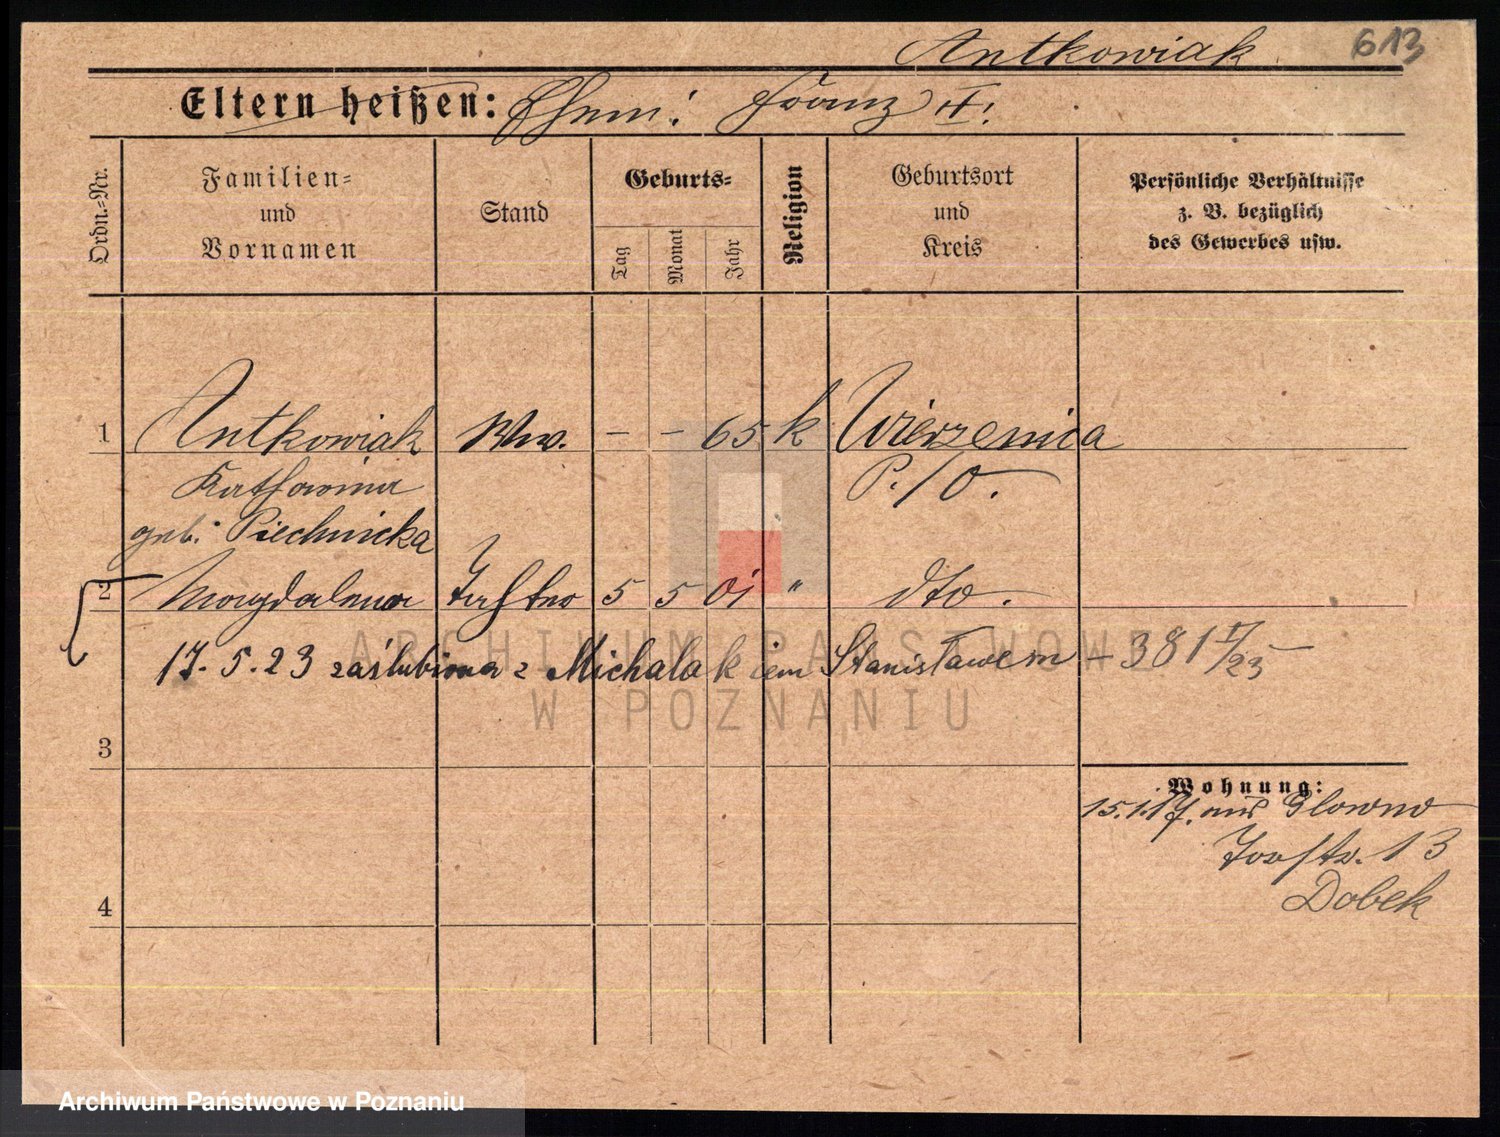 Antkowiak 613
Eltern heißen: Ehem: Franz II!
Ordn.-Nr.
Familien-
und
Vornamen
Stand
Geburts-
Tag
Monat
Jahr
Religion
Geburtsort
und
Kreis
Persönliche Verhältnisse
z. B. bezüglich
des Gewerbes usw.
1 Antkowiak Ww. – – 65 k Wierzenica
Katharina P./O.
geb. Piechnicka
2 Magdalena Tochter 5 5 01 " dto.
17. 5. 23 zaślubiona z Michalakiem Stanisławem – 381 I/23
3
Wohnung:
15.1.17. aus Glowno
Torstr. 13
Dobek
4
ARCHIWUM PAŃSTWOWE
W POZNANIU
Archiwum Państwowe w Poznaniu